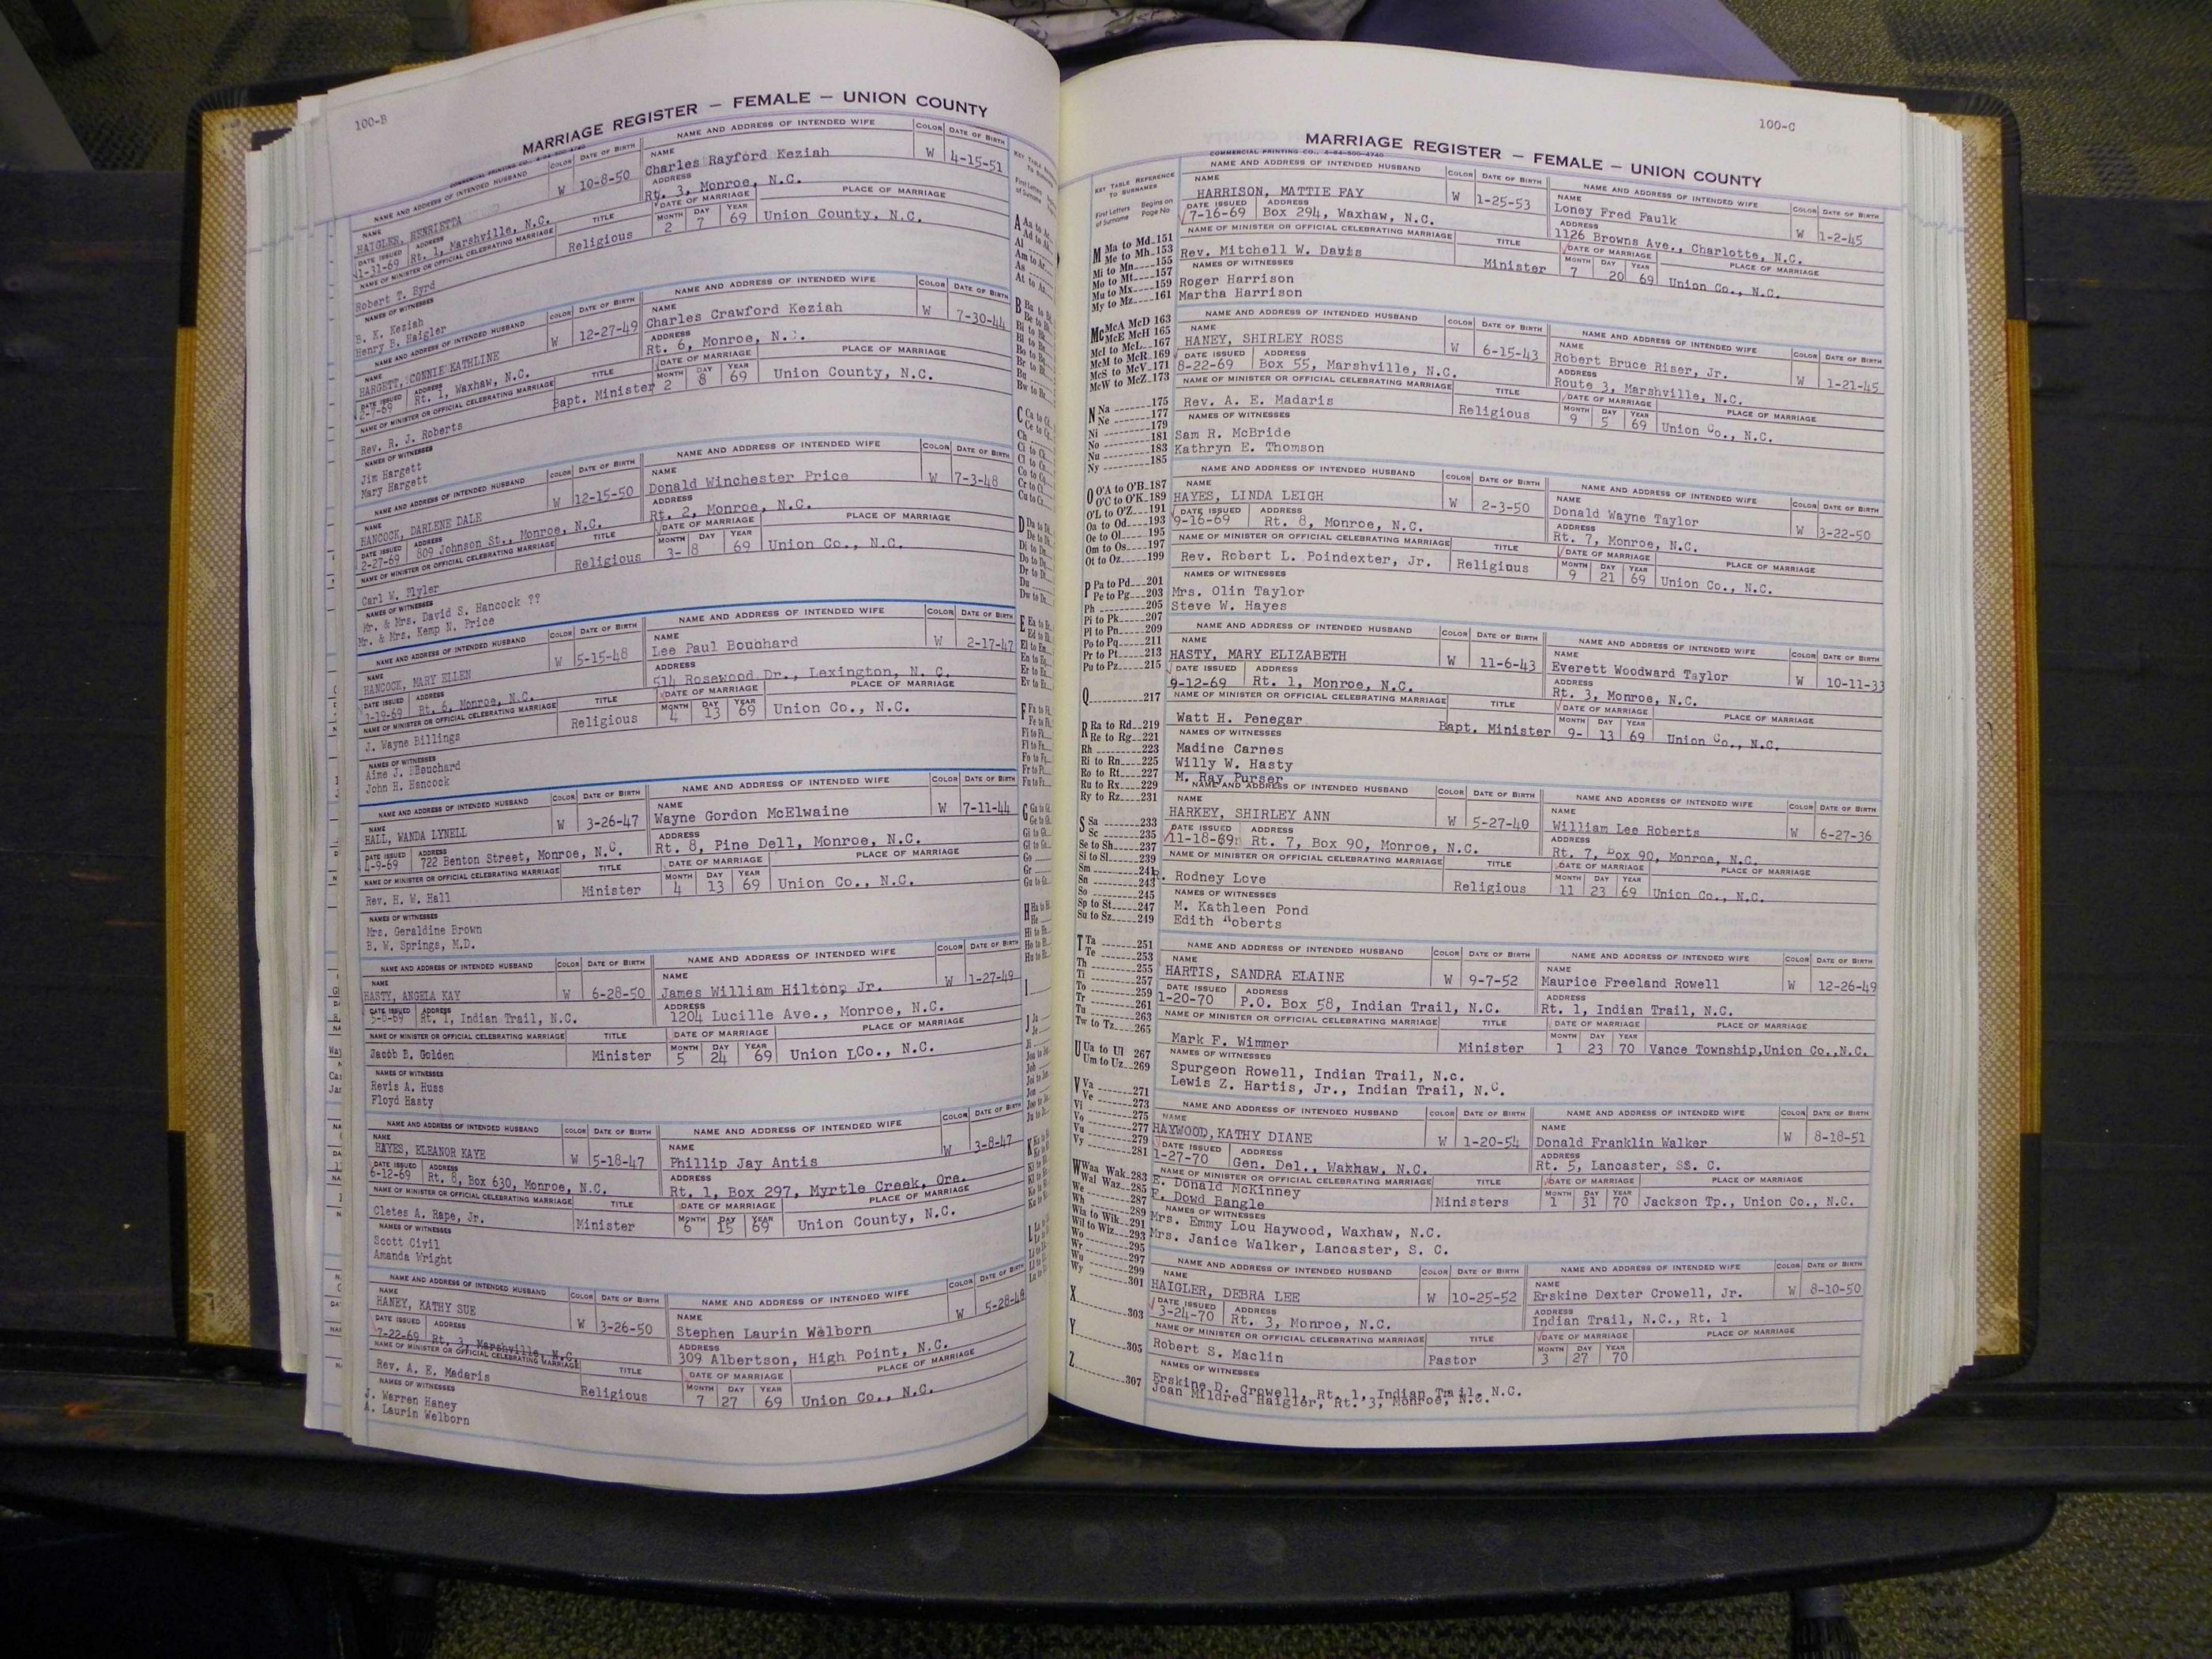 100-B
MARRIAGE REGISTER — FEMALE — UNION COUNTY
COMMERCIAL PRINTING CO., 4-64-500-4740
NAME AND ADDRESS OF INTENDED HUSBAND COLOR DATE OF BIRTH NAME AND ADDRESS OF INTENDED WIFE COLOR DATE OF BIRTH
NAME HAIGLER, HENRIETTA W 10-8-50 NAME Charles Rayford Keziah W 4-15-51
DATE ISSUED 1-31-69 ADDRESS Rt. 1, Marshville, N.C. ADDRESS Rt. 3, Monroe, N.C.
NAME OF MINISTER OR OFFICIAL CELEBRATING MARRIAGE TITLE DATE OF MARRIAGE PLACE OF MARRIAGE
Robert T. Byrd Religious MONTH 2 DAY 7 YEAR 69 Union County, N.C.
NAMES OF WITNESSES
B. K. Keziah
Henry B. Haigler
NAME AND ADDRESS OF INTENDED HUSBAND COLOR DATE OF BIRTH NAME AND ADDRESS OF INTENDED WIFE COLOR DATE OF BIRTH
NAME HARGETT, CONNIE KATHLINE W 12-27-49 NAME Charles Crawford Keziah W 7-30-44
DATE ISSUED 2-7-69 ADDRESS Rt. 1, Waxhaw, N.C. ADDRESS Rt. 6, Monroe, N.C.
NAME OF MINISTER OR OFFICIAL CELEBRATING MARRIAGE TITLE DATE OF MARRIAGE PLACE OF MARRIAGE
Rev. R. J. Roberts Bapt. Minister MONTH 2 DAY 8 YEAR 69 Union County, N.C.
NAMES OF WITNESSES
Jim Hargett
Mary Hargett
NAME AND ADDRESS OF INTENDED HUSBAND COLOR DATE OF BIRTH NAME AND ADDRESS OF INTENDED WIFE COLOR DATE OF BIRTH
NAME HANCOCK, DARLENE DALE W 12-15-50 NAME Donald Winchester Price W 7-3-48
DATE ISSUED 2-27-69 ADDRESS 809 Johnson St., Monroe, N.C. ADDRESS Rt. 2, Monroe, N.C.
NAME OF MINISTER OR OFFICIAL CELEBRATING MARRIAGE TITLE DATE OF MARRIAGE PLACE OF MARRIAGE
Carl W. Plyler Religious MONTH 3- DAY 8 YEAR 69 Union Co., N.C.
NAMES OF WITNESSES
Mr. & Mrs. David S. Hancock ??
Mr. & Mrs. Kemp N. Price
NAME AND ADDRESS OF INTENDED HUSBAND COLOR DATE OF BIRTH NAME AND ADDRESS OF INTENDED WIFE COLOR DATE OF BIRTH
NAME HANCOCK, MARY ELLEN W 5-15-48 NAME Lee Paul Bouchard W 2-17-47
DATE ISSUED 1-19-69 ADDRESS Rt. 6, Monroe, N.C. ADDRESS 514 Rosewood Dr., Lexington, N. C.
NAME OF MINISTER OR OFFICIAL CELEBRATING MARRIAGE TITLE DATE OF MARRIAGE PLACE OF MARRIAGE
J. Wayne Billings Religious MONTH 4 DAY 13 YEAR 69 Union Co., N.C.
NAMES OF WITNESSES
Aime J. Bouchard
John H. Hancock
NAME AND ADDRESS OF INTENDED HUSBAND COLOR DATE OF BIRTH NAME AND ADDRESS OF INTENDED WIFE COLOR DATE OF BIRTH
NAME HALL, WANDA LYNELL W 3-26-47 NAME Wayne Gordon McElwaine W 7-11-44
DATE ISSUED 4-9-69 ADDRESS 722 Benton Street, Monroe, N.C. ADDRESS Rt. 8, Pine Dell, Monroe, N.C.
NAME OF MINISTER OR OFFICIAL CELEBRATING MARRIAGE TITLE DATE OF MARRIAGE PLACE OF MARRIAGE
Rev. H. W. Hall Minister MONTH 4 DAY 13 YEAR 69 Union Co., N.C.
NAMES OF WITNESSES
Mrs. Geraldine Brown
B. W. Springs, M.D.
NAME AND ADDRESS OF INTENDED HUSBAND COLOR DATE OF BIRTH NAME AND ADDRESS OF INTENDED WIFE COLOR DATE OF BIRTH
NAME HASTY, ANGELA KAY W 6-28-50 NAME James William Hilton, Jr. W 1-27-49
DATE ISSUED 5-8-69 ADDRESS Rt. 1, Indian Trail, N.C. ADDRESS 1204 Lucille Ave., Monroe, N.C.
NAME OF MINISTER OR OFFICIAL CELEBRATING MARRIAGE TITLE DATE OF MARRIAGE PLACE OF MARRIAGE
Jacob B. Golden Minister MONTH 5 DAY 24 YEAR 69 Union LCo., N.C.
NAMES OF WITNESSES
Revis A. Huss
Floyd Hasty
NAME AND ADDRESS OF INTENDED HUSBAND COLOR DATE OF BIRTH NAME AND ADDRESS OF INTENDED WIFE COLOR DATE OF BIRTH
NAME HAYES, ELEANOR KAYE W 5-18-47 NAME Phillip Jay Antis W 3-8-47
DATE ISSUED 6-12-69 ADDRESS Rt. 8, Box 630, Monroe, N.C. ADDRESS Rt. 1, Box 297, Myrtle Creek, Ore.
NAME OF MINISTER OR OFFICIAL CELEBRATING MARRIAGE TITLE DATE OF MARRIAGE PLACE OF MARRIAGE
Cletes A. Rape, Jr. Minister MONTH 6 DAY 15 YEAR 69 Union County, N.C.
NAMES OF WITNESSES
Scott Civil
Amanda Wright
NAME AND ADDRESS OF INTENDED HUSBAND COLOR DATE OF BIRTH NAME AND ADDRESS OF INTENDED WIFE COLOR DATE OF BIRTH
NAME HANEY, KATHY SUE W 3-26-50 NAME Stephen Laurin Welborn W 5-28-49
DATE ISSUED 7-22-69 ADDRESS Rt. 3, Marshville, N.C. ADDRESS 309 Albertson, High Point, N.C.
NAME OF MINISTER OR OFFICIAL CELEBRATING MARRIAGE TITLE DATE OF MARRIAGE PLACE OF MARRIAGE
Rev. A. E. Madaris Religious MONTH 7 DAY 27 YEAR 69 Union Co., N.C.
NAMES OF WITNESSES
J. Warren Haney
A. Laurin Welborn
100-C
MARRIAGE REGISTER — FEMALE — UNION COUNTY
COMMERCIAL PRINTING CO., 4-64-500-4740
KEY TABLE REFERENCE TO SURNAMES
First Letters of Surname Begins on Page No
M Ma to Md 151
Me to Mh 153
Mi to Mn 155
Mo to Mt 157
Mu to Mx 159
My to Mz 161
Mc McA McD 163
McE McH 165
McI to McL 167
McM to McR 169
McS to McV 171
McW to McZ 173
N Na 175
Ne 177
Ni 179
No 181
Nu 183
Ny 185
O O'A to O'B 187
O'C to O'K 189
O'L to O'Z 191
Oa to Od 193
Oe to Ol 195
Om to Os 197
Ot to Oz 199
P Pa to Pd 201
Pe to Pg 203
Ph 205
Pi to Pk 207
Pl to Pn 209
Po to Pq 211
Pr to Pt 213
Pu to Pz 215
Q 217
R Ra to Rd 219
Re to Rg 221
Rh 223
Ri to Rn 225
Ro to Rt 227
Ru to Rx 229
Ry to Rz 231
S Sa 233
Sc 235
Se to Sh 237
Si to Sl 239
Sm 241
Sn 243
So 245
Sp to St 247
Su to Sz 249
T Ta 251
Te 253
Th 255
Ti 257
To 259
Tr 261
Tu 263
Tw to Tz 265
U Ua to Ul 267
Um to Uz 269
V Va 271
Ve 273
Vi 275
Vo 277
Vu 279
Vy 281
W Waa Wak 283
Wal Waz 285
We 287
Wh 289
Wia to Wik 291
Wil to Wiz 293
Wo 295
Wr 297
Wu 299
Wy 301
X 303
Y 305
Z 307
NAME AND ADDRESS OF INTENDED HUSBAND COLOR DATE OF BIRTH NAME AND ADDRESS OF INTENDED WIFE COLOR DATE OF BIRTH
NAME HARRISON, MATTIE FAY W 1-25-53 NAME Loney Fred Faulk W 1-2-45
DATE ISSUED 7-16-69 ADDRESS Box 294, Waxhaw, N.C. ADDRESS 1126 Browns Ave., Charlotte, N.C.
NAME OF MINISTER OR OFFICIAL CELEBRATING MARRIAGE TITLE DATE OF MARRIAGE PLACE OF MARRIAGE
Rev. Mitchell W. Davis Minister MONTH 7 DAY 20 YEAR 69 Union Co., N.C.
NAMES OF WITNESSES
Roger Harrison
Martha Harrison
NAME AND ADDRESS OF INTENDED HUSBAND COLOR DATE OF BIRTH NAME AND ADDRESS OF INTENDED WIFE COLOR DATE OF BIRTH
NAME HANEY, SHIRLEY ROSS W 6-15-43 NAME Robert Bruce Riser, Jr. W 1-21-45
DATE ISSUED 8-22-69 ADDRESS Box 55, Marshville, N.C. ADDRESS Route 3, Marshville, N.C.
NAME OF MINISTER OR OFFICIAL CELEBRATING MARRIAGE TITLE DATE OF MARRIAGE PLACE OF MARRIAGE
Rev. A. E. Madaris Religious MONTH 9 DAY 5 YEAR 69 Union Co., N.C.
NAMES OF WITNESSES
Sam R. McBride
Kathryn E. Thomson
NAME AND ADDRESS OF INTENDED HUSBAND COLOR DATE OF BIRTH NAME AND ADDRESS OF INTENDED WIFE COLOR DATE OF BIRTH
NAME HAYES, LINDA LEIGH W 2-3-50 NAME Donald Wayne Taylor W 3-22-50
DATE ISSUED 9-16-69 ADDRESS Rt. 8, Monroe, N.C. ADDRESS Rt. 7, Monroe, N.C.
NAME OF MINISTER OR OFFICIAL CELEBRATING MARRIAGE TITLE DATE OF MARRIAGE PLACE OF MARRIAGE
Rev. Robert L. Poindexter, Jr. Religious MONTH 9 DAY 21 YEAR 69 Union Co., N.C.
NAMES OF WITNESSES
Mrs. Olin Taylor
Steve W. Hayes
NAME AND ADDRESS OF INTENDED HUSBAND COLOR DATE OF BIRTH NAME AND ADDRESS OF INTENDED WIFE COLOR DATE OF BIRTH
NAME HASTY, MARY ELIZABETH W 11-6-43 NAME Everett Woodward Taylor W 10-11-33
DATE ISSUED 9-12-69 ADDRESS Rt. 1, Monroe, N.C. ADDRESS Rt. 3, Monroe, N.C.
NAME OF MINISTER OR OFFICIAL CELEBRATING MARRIAGE TITLE DATE OF MARRIAGE PLACE OF MARRIAGE
Watt H. Penegar Bapt. Minister MONTH 9- DAY 13 YEAR 69 Union Co., N.C.
NAMES OF WITNESSES
Madine Carnes
Willy W. Hasty
M. Ray Purser
NAME AND ADDRESS OF INTENDED HUSBAND COLOR DATE OF BIRTH NAME AND ADDRESS OF INTENDED WIFE COLOR DATE OF BIRTH
NAME HARKEY, SHIRLEY ANN W 5-27-40 NAME William Lee Roberts W 6-27-36
DATE ISSUED 11-18-69 ADDRESS Rt. 7, Box 90, Monroe, N.C. ADDRESS Rt. 7, Box 90, Monroe, N.C.
NAME OF MINISTER OR OFFICIAL CELEBRATING MARRIAGE TITLE DATE OF MARRIAGE PLACE OF MARRIAGE
R. Rodney Love Religious MONTH 11 DAY 23 YEAR 69 Union Co., N.C.
NAMES OF WITNESSES
M. Kathleen Pond
Edith Roberts
NAME AND ADDRESS OF INTENDED HUSBAND COLOR DATE OF BIRTH NAME AND ADDRESS OF INTENDED WIFE COLOR DATE OF BIRTH
NAME HARTIS, SANDRA ELAINE W 9-7-52 NAME Maurice Freeland Rowell W 12-26-49
DATE ISSUED 1-20-70 ADDRESS P.O. Box 58, Indian Trail, N.C. ADDRESS Rt. 1, Indian Trail, N.C.
NAME OF MINISTER OR OFFICIAL CELEBRATING MARRIAGE TITLE DATE OF MARRIAGE PLACE OF MARRIAGE
Mark F. Wimmer Minister MONTH 1 DAY 23 YEAR 70 Vance Township,Union Co.,N.C.
NAMES OF WITNESSES
Spurgeon Rowell, Indian Trail, N.c.
Lewis Z. Hartis, Jr., Indian Trail, N.C.
NAME AND ADDRESS OF INTENDED HUSBAND COLOR DATE OF BIRTH NAME AND ADDRESS OF INTENDED WIFE COLOR DATE OF BIRTH
NAME HAYWOOD,KATHY DIANE W 1-20-54 Donald Franklin Walker W 8-18-51
DATE ISSUED 1-27-70 ADDRESS Gen. Del., Waxhaw, N.C. ADDRESS Rt. 5, Lancaster, SS. C.
NAME OF MINISTER OR OFFICIAL CELEBRATING MARRIAGE TITLE DATE OF MARRIAGE PLACE OF MARRIAGE
E. Donald McKinney
F. Dowd Bangle Ministers MONTH 1 DAY 31 YEAR 70 Jackson Tp., Union Co., N.C.
NAMES OF WITNESSES
Mrs. Emmy Lou Haywood, Waxhaw, N.C.
Mrs. Janice Walker, Lancaster, S. C.
NAME AND ADDRESS OF INTENDED HUSBAND COLOR DATE OF BIRTH NAME AND ADDRESS OF INTENDED WIFE COLOR DATE OF BIRTH
NAME HAIGLER, DEBRA LEE W 10-25-52 NAME Erskine Dexter Crowell, Jr. W 8-10-50
DATE ISSUED 3-24-70 ADDRESS Rt. 3, Monroe, N.C. ADDRESS Indian Trail, N.C., Rt. 1
NAME OF MINISTER OR OFFICIAL CELEBRATING MARRIAGE TITLE DATE OF MARRIAGE PLACE OF MARRIAGE
Robert S. Maclin Pastor MONTH 3 DAY 27 YEAR 70
NAMES OF WITNESSES
Erskine D. Crowell, Rt. 1, Indian Trail, N.C.
Joan Mildred Haigler, Rt. 3, Monroe, N.C.